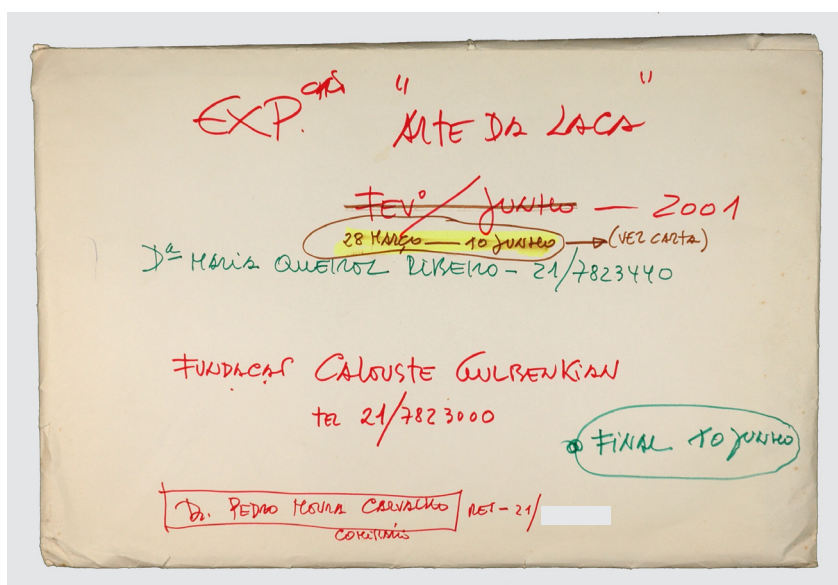 EXP. "ARTE DA LACA"
FEVº/JUNHO — 2001
28 MARÇO — 10 JUNHO → (VER CARTA)
Dª MARIA QUEIROZ RIBEIRO - 21/7823440
FUNDAÇÃO CALOUSTE GULBENKIAN
TEL 21/7823000
FINAL 10 JUNHO
Dr. PEDRO MOURA CARVALHO RET-21/
COMISSÁRIO